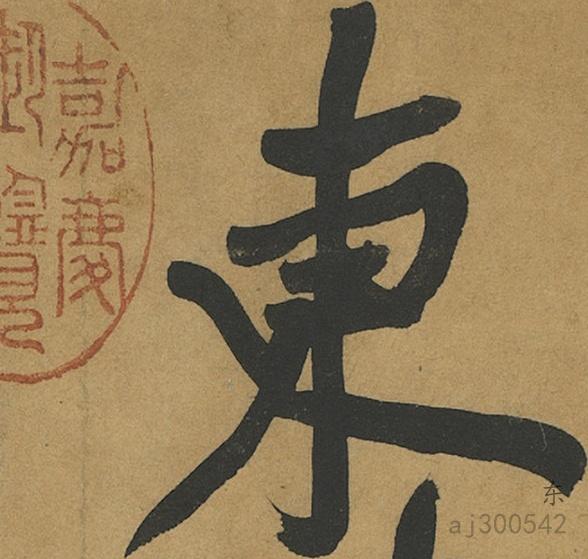 東
嘉慶
御覽
东
aj300542